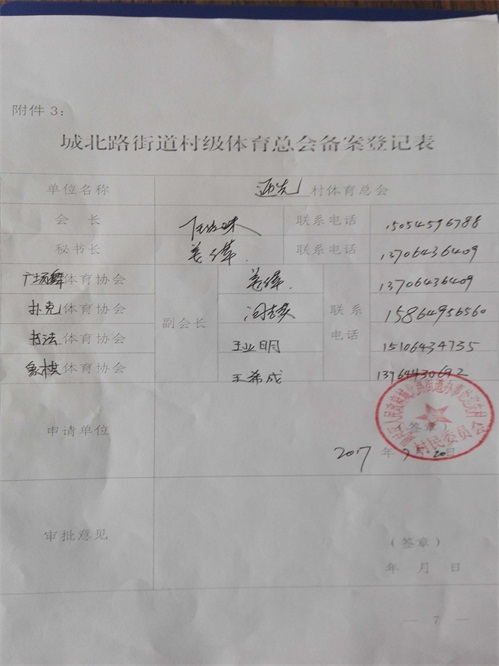 附件3：
城北路街道村级体育总会备案登记表
单位名称 村体育总会
会 长 联系电话 15054596788
秘书长 姜伟 联系电话 13706436409
广场舞体育协会 姜伟 13706436409
扑克体育协会 副会长 联系 15864956560
书法体育协会 王业明 电话 15106434735
象棋体育协会 王希成
申请单位 （签章）
村民委员会
2017 年 月 20 日
审批意见 （签章）
年 月 日
— 7 —